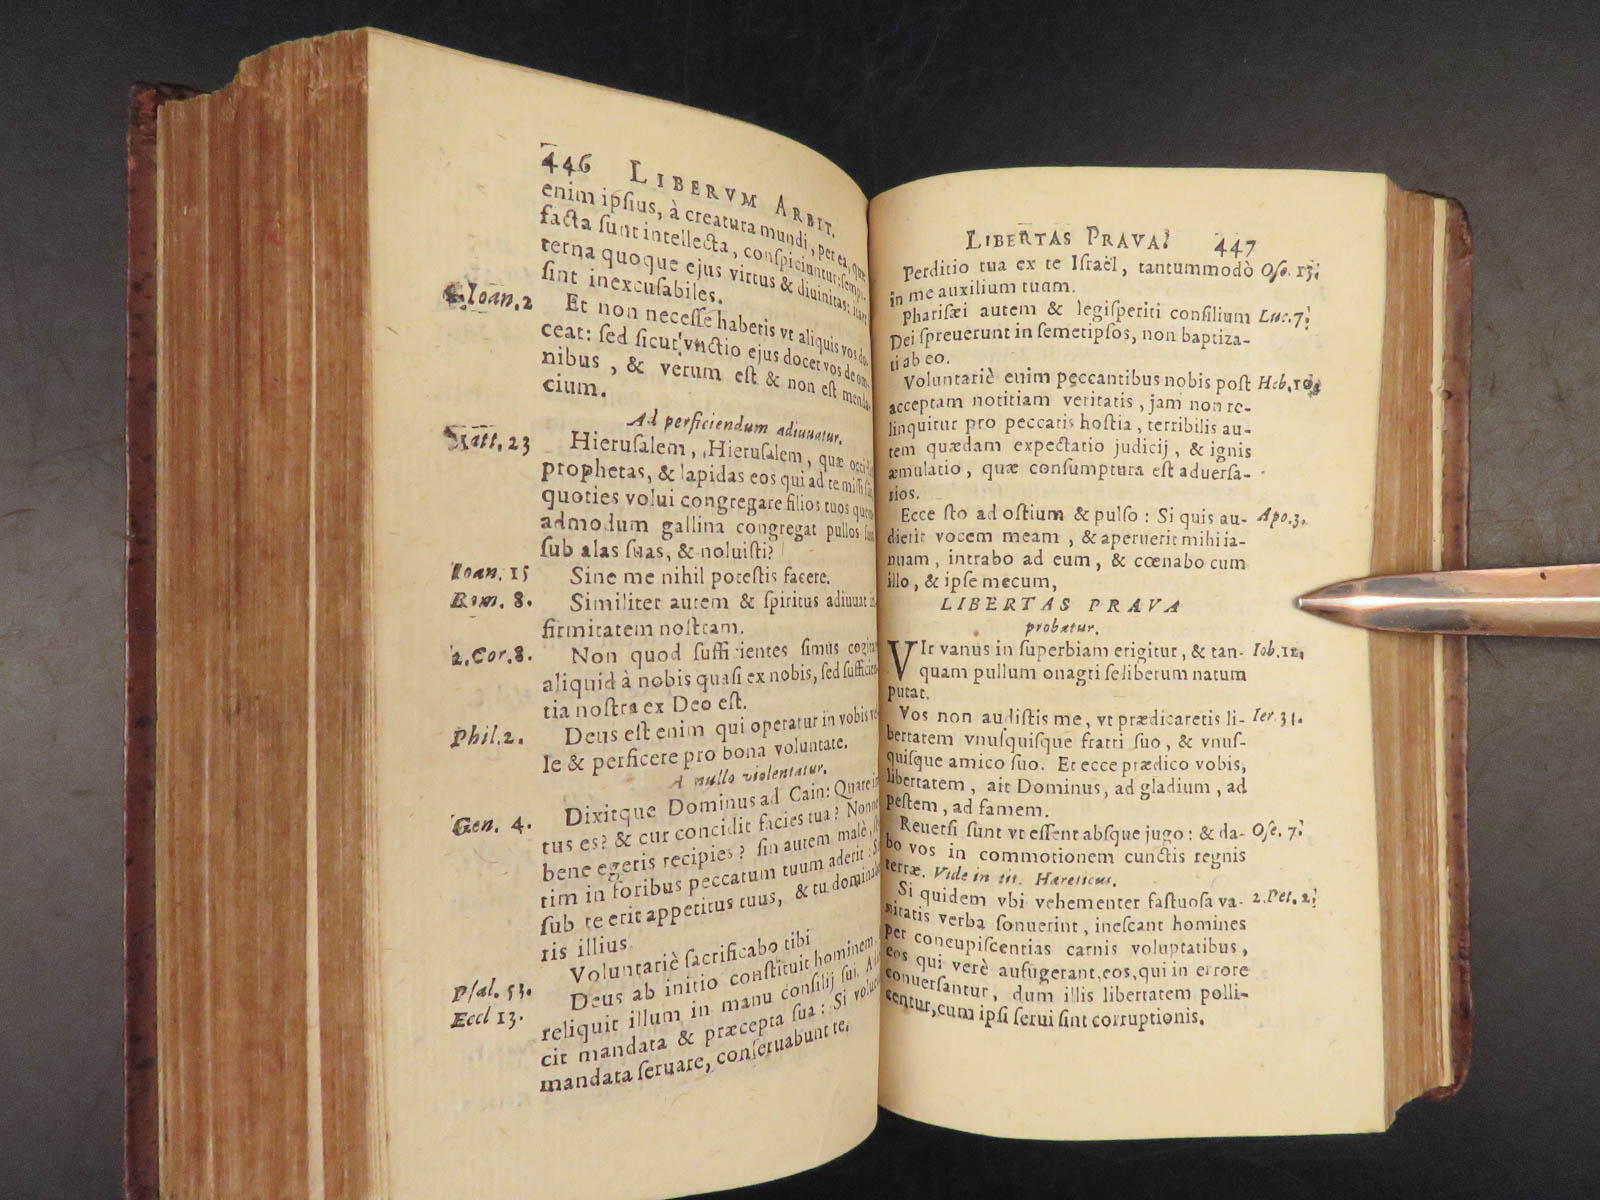 446 LIBERVM ARBIT.
enim ipſius, à creatura mundi, per ea, quæ
facta ſunt intellecta, conſpiciuntur: ſempi-
terna quoque ejus virtus & diuinitas:
ſint inexcuſabiles.
Ioan. 2 Et non neceſſe habetis vt aliquis vos do-
ceat: ſed ſicut vnctio ejus docet vos de om-
nibus, & verum eſt & non eſt menda-
cium.
Ad perficiendum adiuuatur.
Matt. 23 Hieruſalem, Hieruſalem, quæ
prophetas, & lapidas eos qui ad te miſſi
quoties volui congregare filios tuos
admodum gallina congregat pullos
ſub alas ſuas, & noluiſti?
Ioan. 15 Sine me nihil poteſtis facere.
Rom. 8. Similiter autem & ſpiritus adiuuat
firmitatem noſtram.
2. Cor. 8. Non quod ſufficientes ſimus
aliquid à nobis quaſi ex nobis, ſed
tia noſtra ex Deo eſt.
Phil. 2. Deus eſt enim qui operatur in vobis
le & perficere pro bona voluntate.
A nullo violentatur.
Gen. 4. Dixitque Dominus ad Cain: Quare
tus es? & cur concidit facies tua?
bene egeris recipies? ſin autem malè,
tim in foribus peccatum tuum aderit:
ſub te erit appetitus tuus, & tu
ris illius.
Pſal. 53. Voluntariè ſacrificabo tibi
Eccl 13. Deus ab initio conſtituit hominem,
reliquit illum in manu conſilij ſui.
cit mandata & præcepta ſua: Si
mandata ſeruare, conſeruabunt te.
LIBERTAS PRAVA. 447
Perditio tua ex te Iſraël, tantummodò Oſe. 13.
in me auxilium tuum.
Phariſæi autem & legiſperiti conſilium Luc. 7.
Dei ſpreuerunt in ſemetipſos, non baptiza-
ti ab eo.
Voluntariè enim peccantibus nobis poſt Heb. 10.
acceptam notitiam veritatis, jam non re-
linquitur pro peccatis hoſtia, terribilis au-
tem quædam expectatio judicij, & ignis
æmulatio, quæ conſumptura eſt aduerſa-
rios.
Ecce ſto ad oſtium & pulſo: Si quis au- Apo. 3.
dierit vocem meam, & aperuerit mihi ia-
nuam, intrabo ad eum, & cœnabo cum
illo, & ipſe mecum,
LIBERTAS PRAVA
probatur.
VIr vanus in ſuperbiam erigitur, & tan- Iob. 11.
quam pullum onagri ſe liberum natum
putat.
Vos non audiſtis me, vt prædicaretis li- Ier. 34.
bertatem vnuſquiſque fratri ſuo, & vnuſ-
quiſque amico ſuo. Et ecce prædico vobis,
libertatem, ait Dominus, ad gladium, ad
peſtem, ad famem.
Reuerſi ſunt vt eſſent abſque jugo: & da- Oſe. 7.
bo vos in commotionem cunctis regnis
terræ. Vide in tit. Hæreticus.
Si quidem vbi vehementer faſtuoſa va- 2. Pet. 2.
nitatis verba ſonuerint, ineſcant homines
per concupiſcentias carnis voluptatibus,
eos qui verè aufugerant, eos, qui in errore
conuerſantur, dum illis libertatem polli-
centur, cum ipſi ſerui ſint corruptionis.